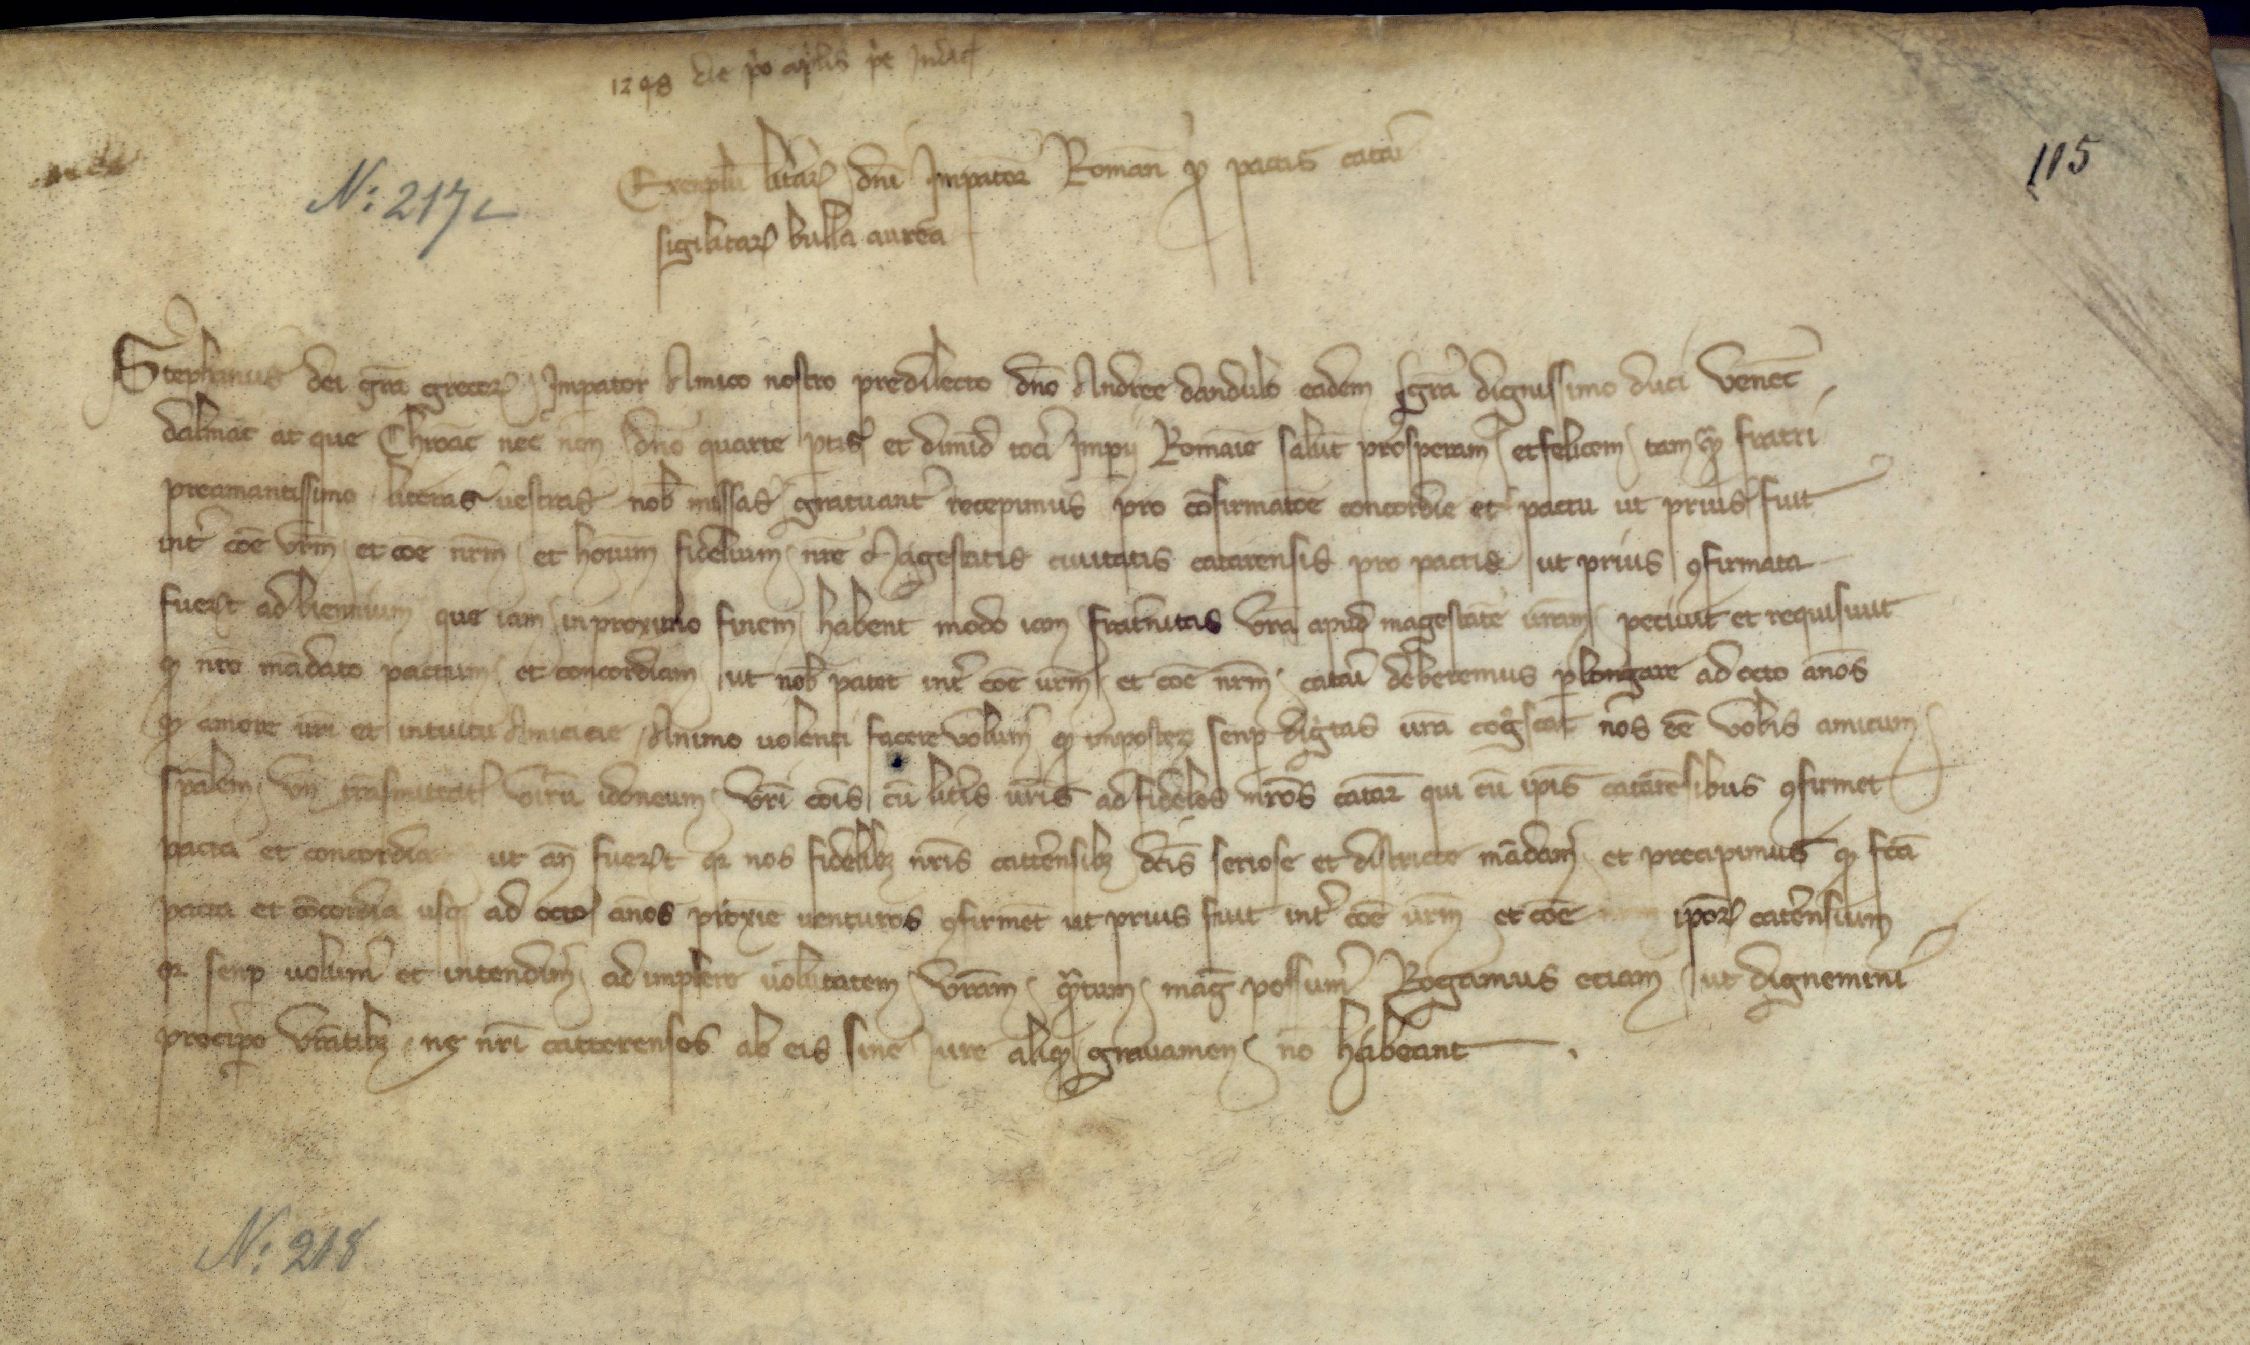 1248 die po aplis pe Indict
N: 217
115
Exemplu litaꝝ dni Impator Roman ꝓ pactis catari
sigilataꝝ bulla aurea
Stephanus dei gra grecoꝝ Impator Amico nostro predilecto dno Andree dandulo eadem gra dignissimo duci venec
dalmac at que Chroac nec non dno quarte ptis et dimid toci Impii Romanie salut prosperam et felicem tam qͣ fratri
preamantissimo literas vestras nob missas gratuant recepimus pro cofirmatoe concordie et pactu ut prius fuit
int coe vrm et coe nrm et hoium fidelium nre Magestatis civitatis catarensis pro pactis ut prius ꝯfirmata
fuerut ad biennium que iam in proximo finem habent modo fratnitas vra apud magestate petivit et requisivit
ꝙ nro madato pactum et concordiam ut nob patet int coe vrm et coe nrm catari deberemus plongare ad octo anos
ꝙ amore vri et intuitu Amicicie Animo volenti facere volum ꝙ imposteꝝ semp digtas vra cogscat nos ee vobis amicum
spalem vn trasmittatis viru idoneum vri cois cu litis vris ad fideles nros catar qui cu ipis catarensibus ꝯfirmet
pacta et concordia ut an fuerut qr nos fidelibꝫ nris cattensibꝫ dcis seriose et districte madam et precipimus ꝙ fca
pacta et cocordia usqꝫ ad octo anos proxie venturos ꝯfirmet ut prius fuit int coe vrm et coe nrm ipoꝝ catensium
qr semp volum et intendim ad implere volutatem vram qͣtum mag possum Rogamus etiam ut dignemini
precipe vratibꝫ ne nri catterenses ab eis sine iure aliqꝫ gravamen no habeant
N: 218